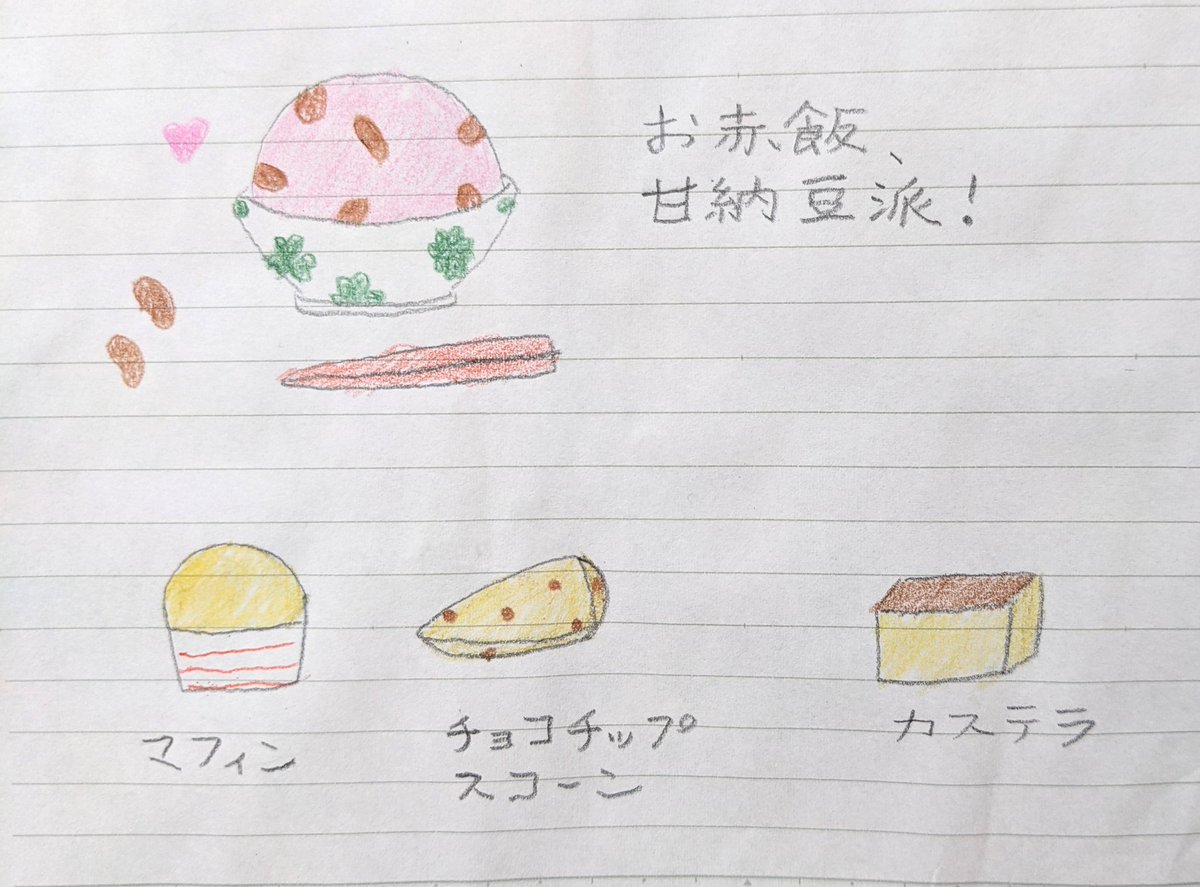 お赤飯、
甘納豆派!
マフィン
チョコチップ
スコーン
カステラ